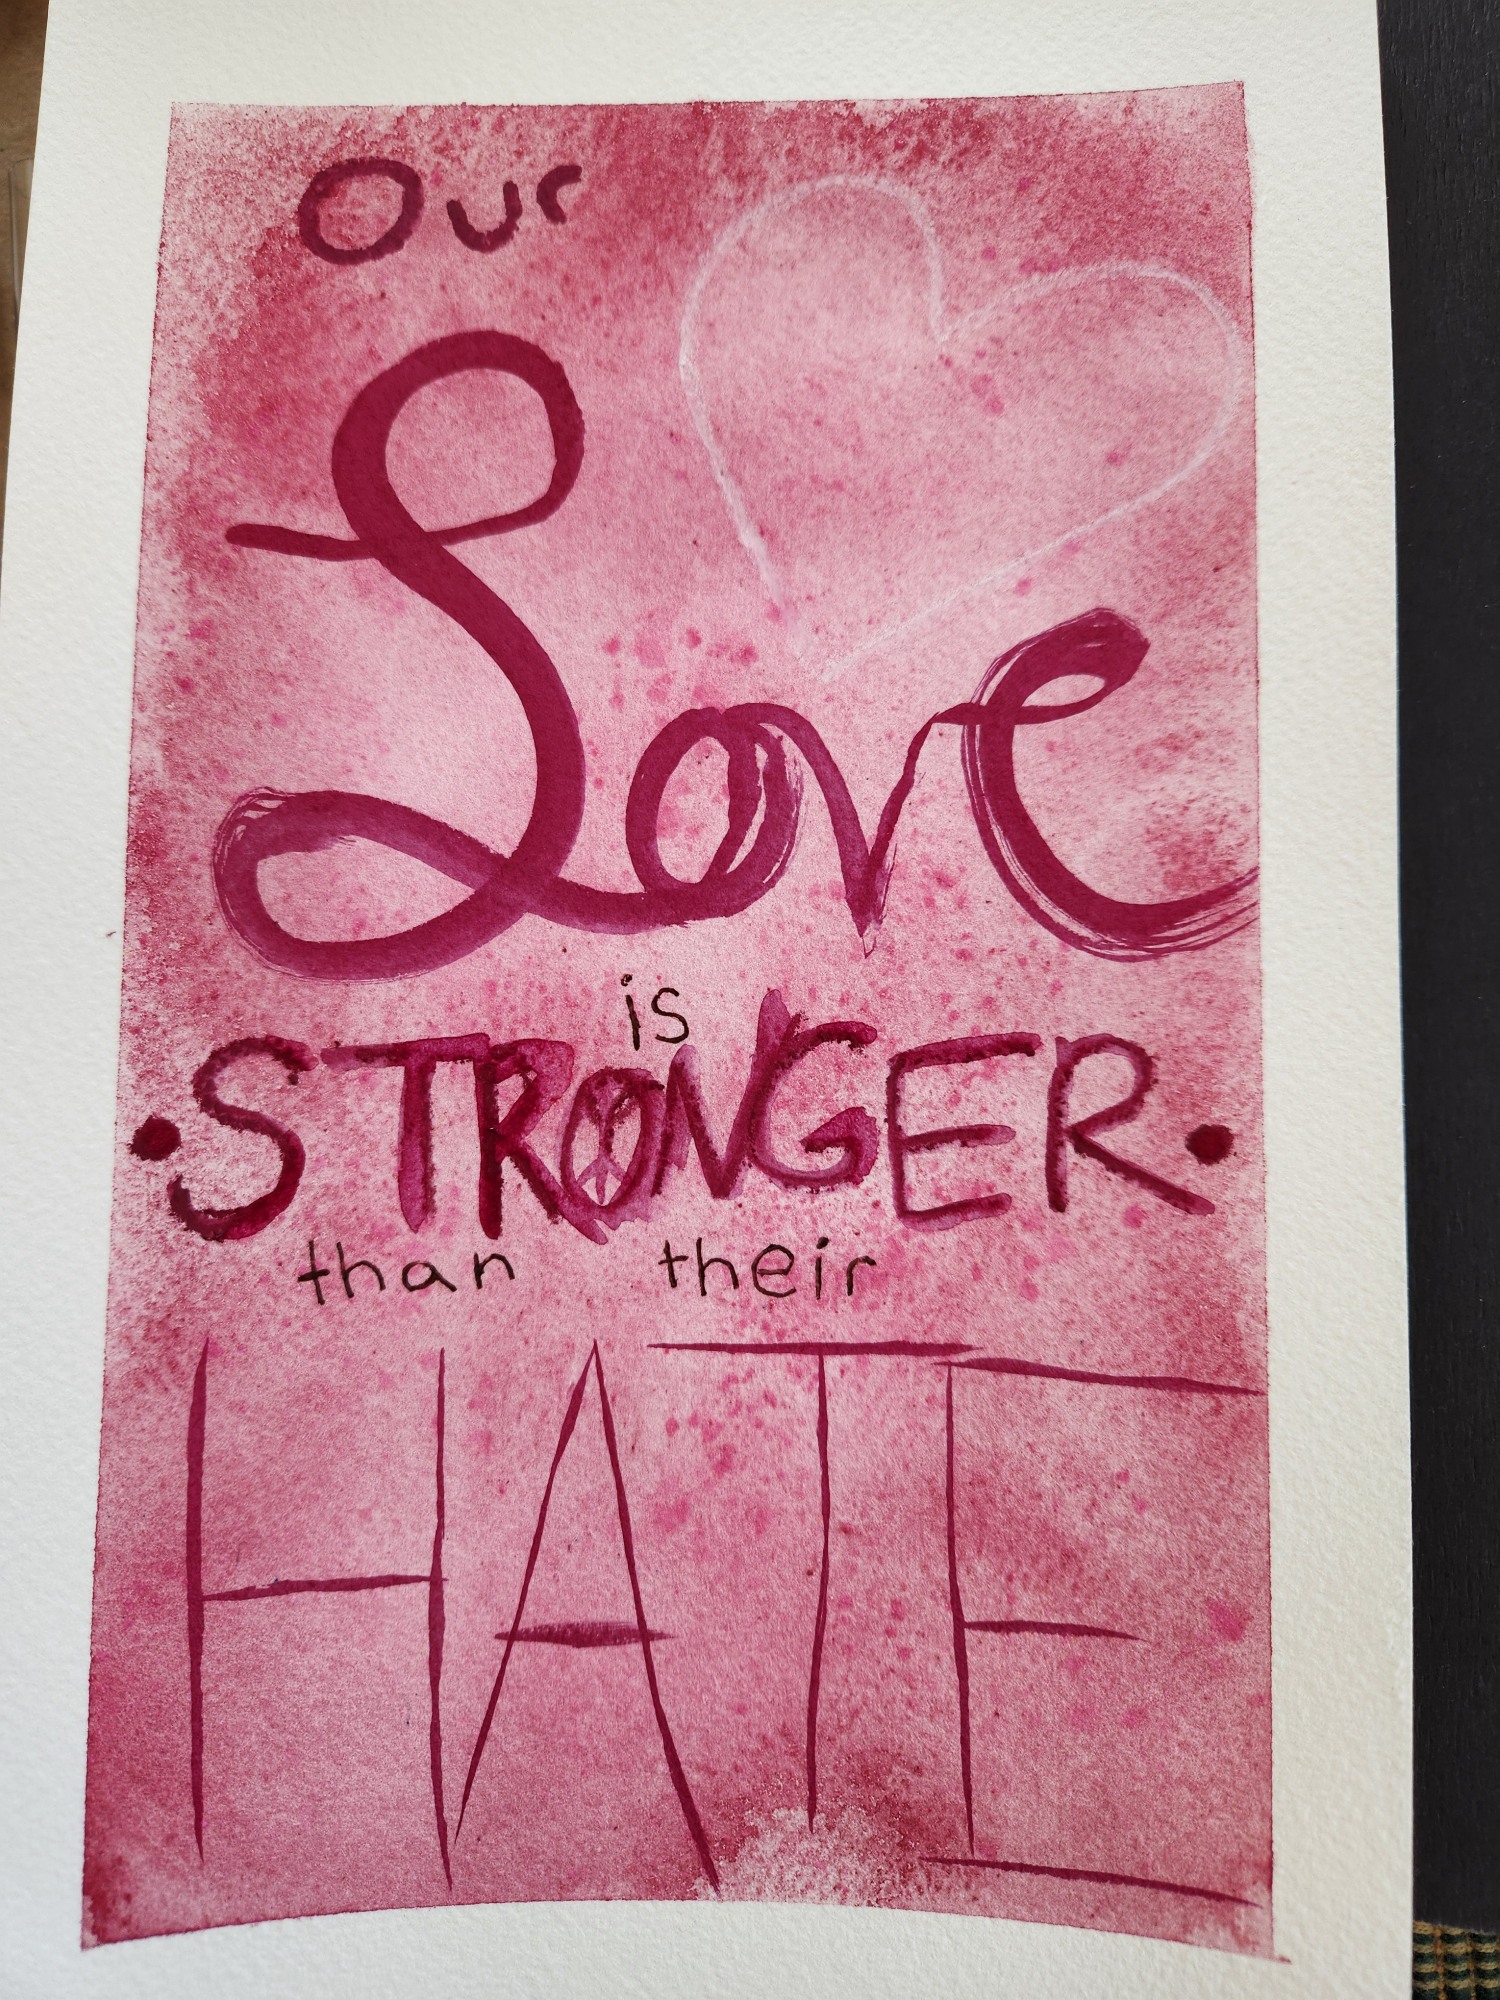 Our
Love
is
•STRONGER•
than their
HATE